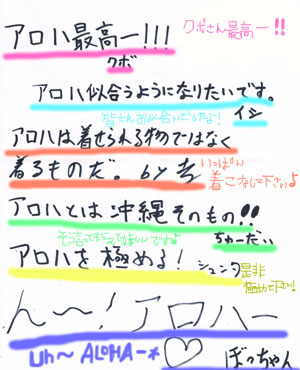 アロハ最高ー!!!
クボさん最高ー!!
クボ
アロハ似合うようになりたいです。
皆さんお似合いでしたよ!
イシ
アロハは着せられる物ではなく
着るものだ。by
いっぱい
着こなして下さいよ
アロハとは沖縄そのもの!!
そう言ってもらえてうれしいですよ
ちゅーだい
アロハを極める!
シュンタ
是非
極めて下さい!
ん〜!アロハー
Uh〜 ALOHA-*
♡
ぼっちゃん